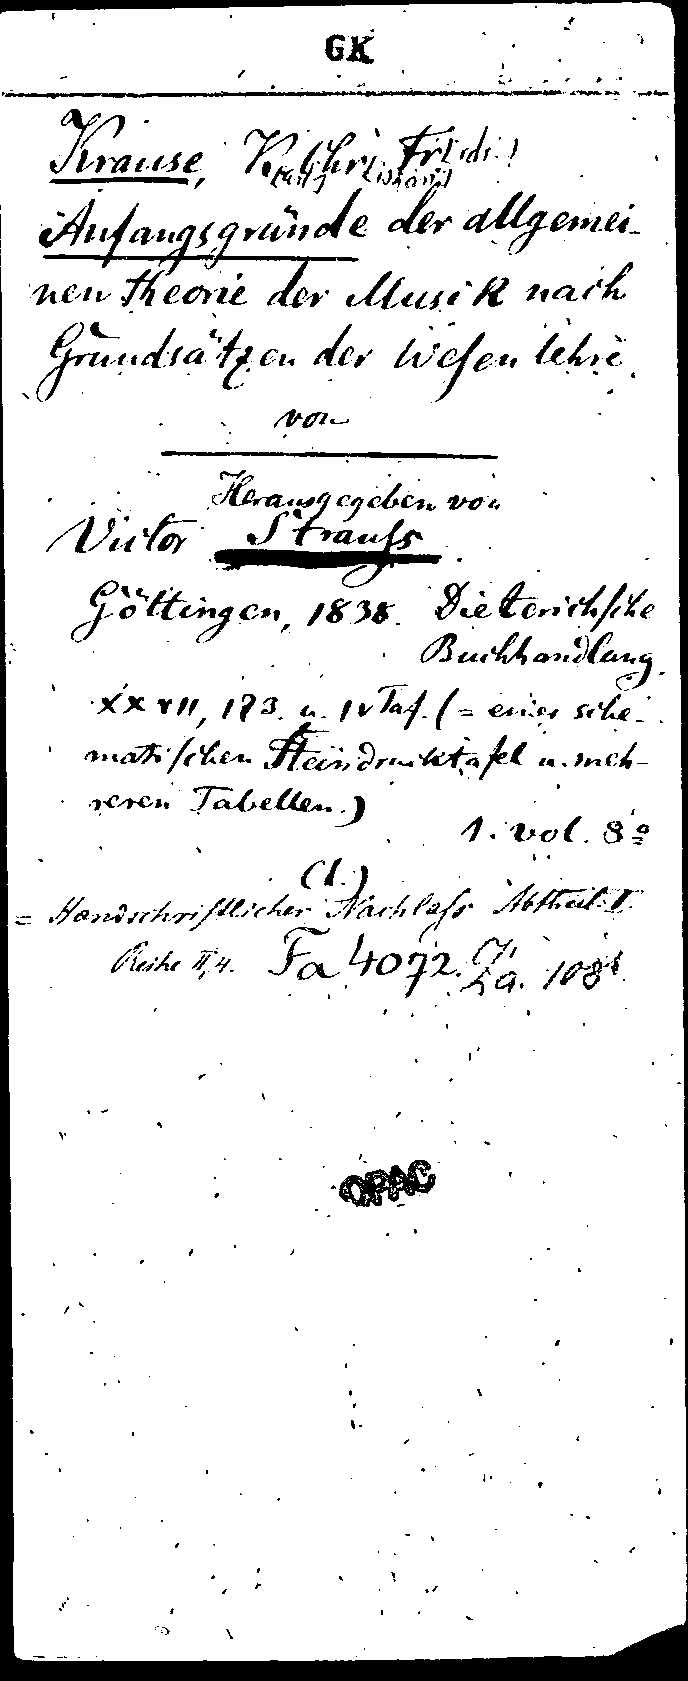 GK
Krause, K[arl] Chr[istian] Fr[iedr.]
Anfangsgründe der allgemei-
nen Theorie der Musik nach
Grundsätzen der Wesenlehre
von
Herausgegeben von
Victor Strauſs.
Göttingen, 1838. Dieterichſche
Buchhandlung.
XXVII, 173. u. IV Taf. (= einer sche-
matiſchen Steindrucktafel u. meh-
reren Tabellen.)
1. vol. 8º
(1.)
= Handschriftlicher Nachlaſs Abtheil. I.
Reihe II, 4. Fa 4072. 108
OPAC